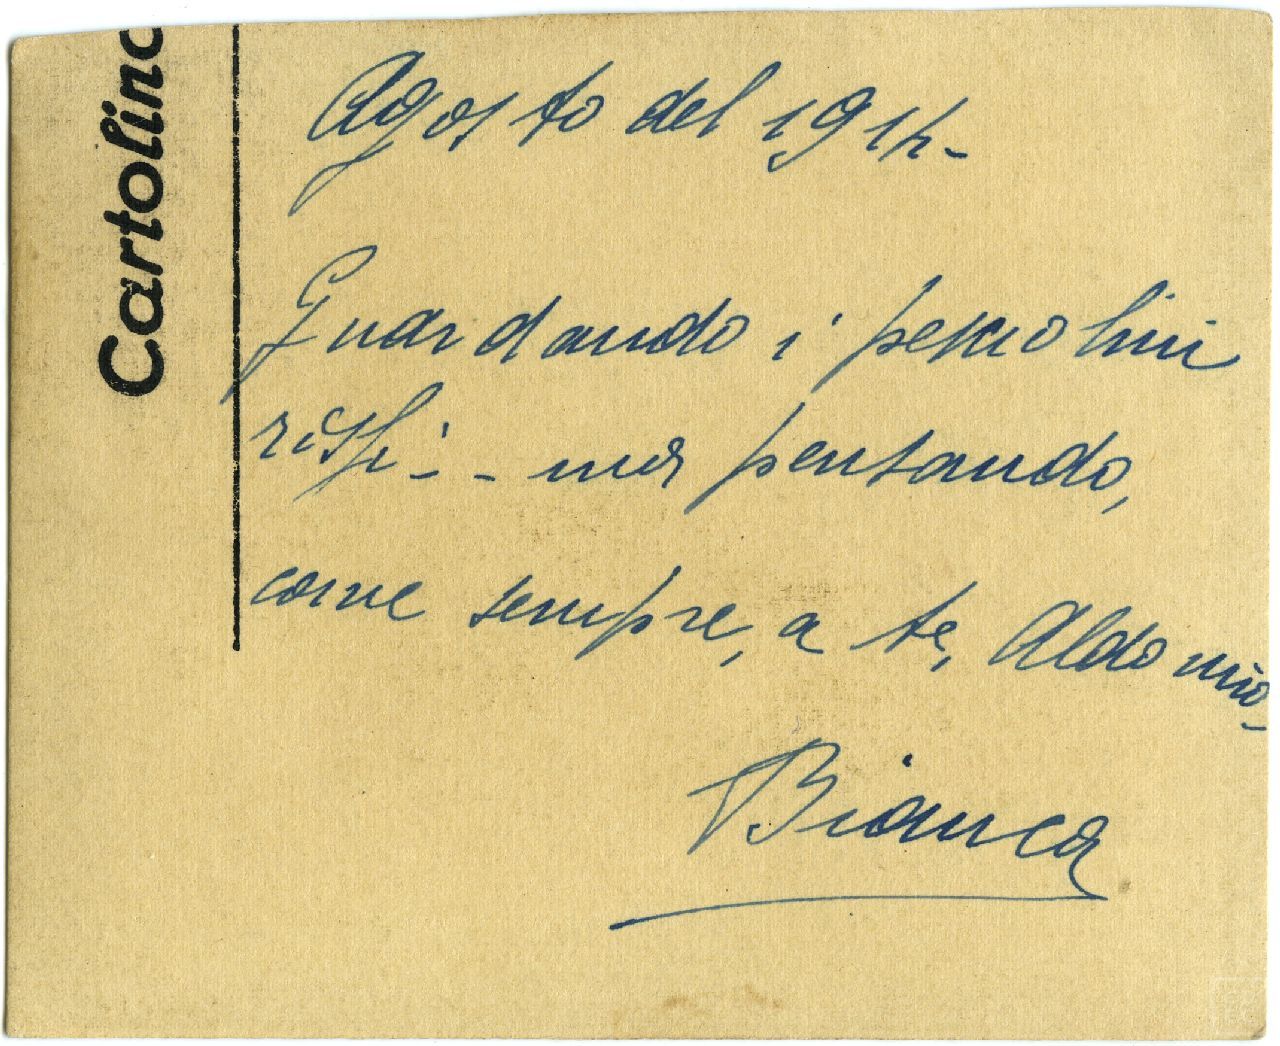 Cartolina
Agosto del 1914-
Guardando i pesciolini
rossi - - ma pensando,
come sempre, a te, Aldo mio-
Bianca